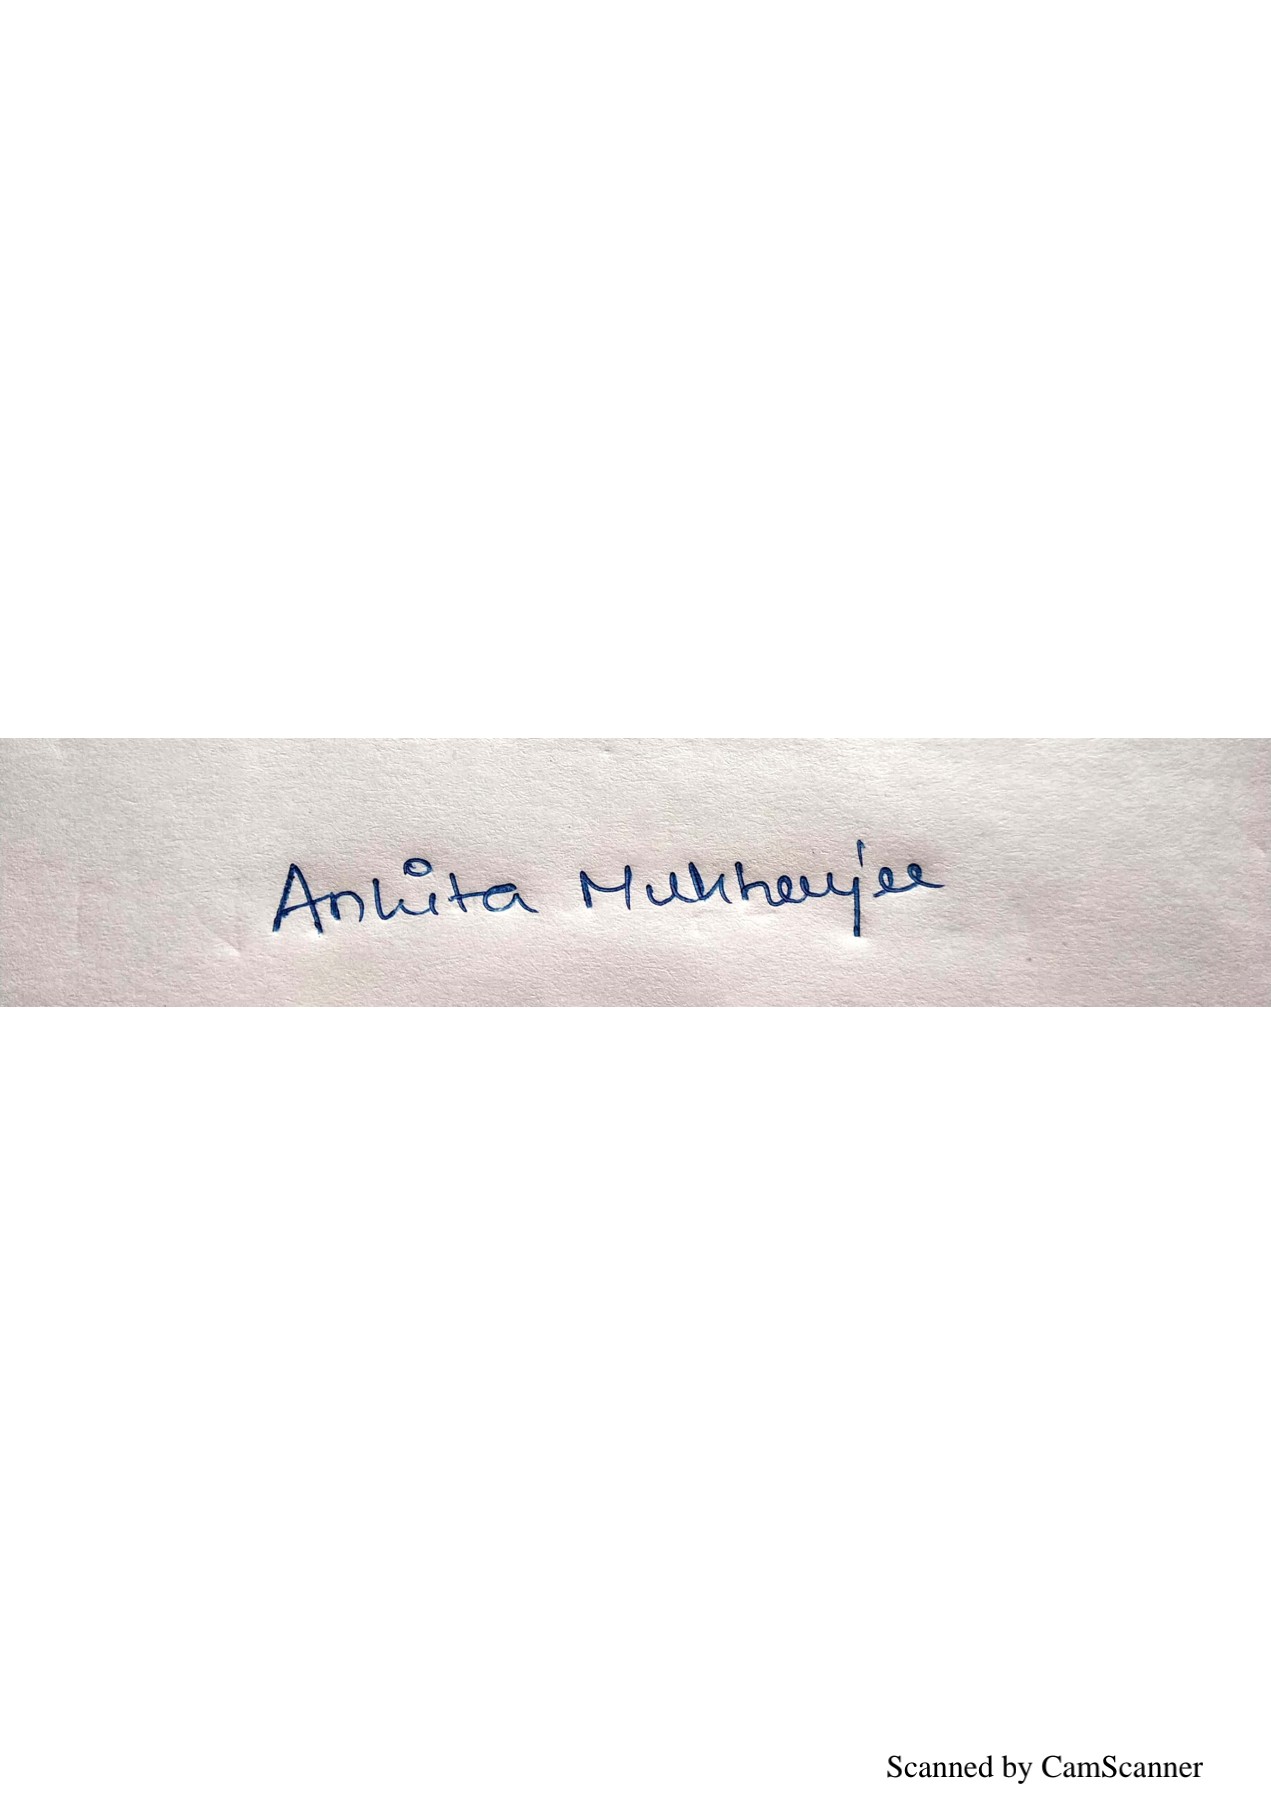 Ankita Mukherjee
Scanned by CamScanner